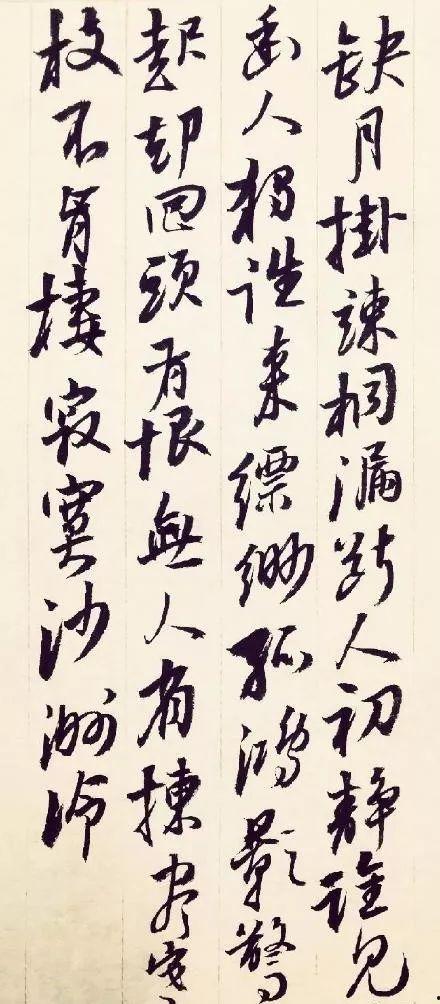 缺月掛疎桐漏断人初静誰见
幽人獨往来縹緲孤鴻影驚
起却回頭有恨無人省揀尽寒
枝不肯棲寂寞沙洲冷